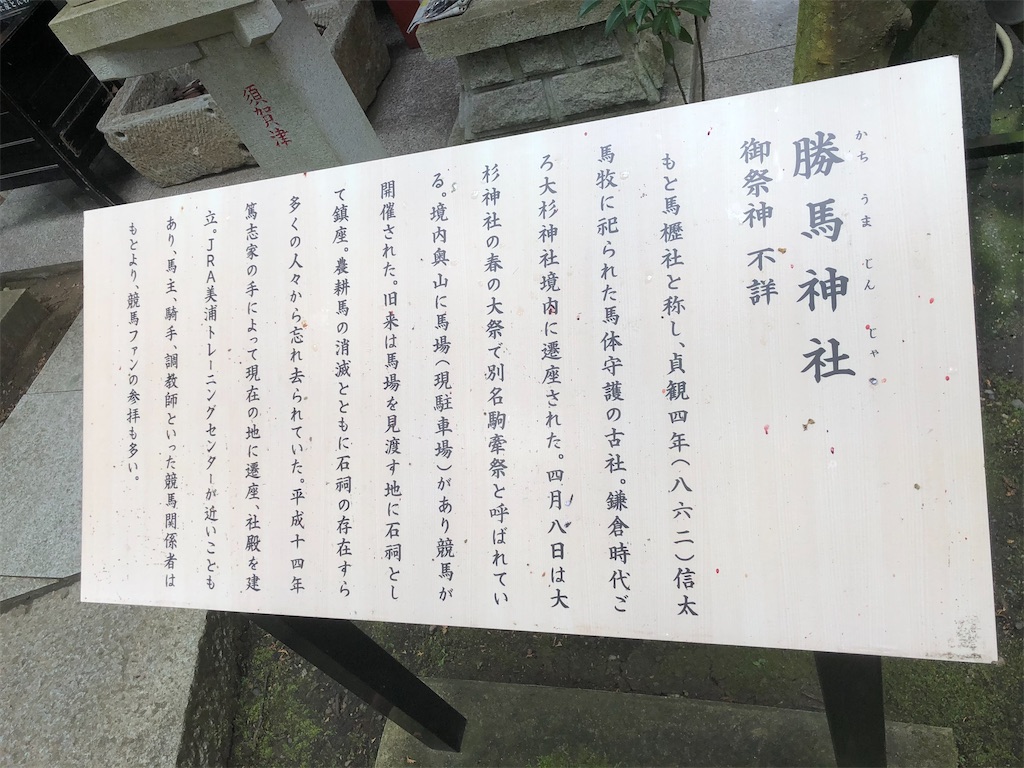 勝馬神社
かちうまじんじゃ
御祭神 不詳
もと馬櫪社と称し、貞観四年(八六二)信太
馬牧に祀られた馬体守護の古社。鎌倉時代ご
ろ大杉神社境内に遷座された。四月八日は大
杉神社の春の大祭で別名駒牽祭と呼ばれてい
る。境内奥山に馬場(現駐車場)があり競馬が
開催された。旧来は馬場を見渡す地に石祠とし
て鎮座。農耕馬の消滅とともに石祠の存在すら
多くの人々から忘れ去られていた。平成十四年
篤志家の手によって現在の地に遷座、社殿を建
立。JRA美浦トレーニングセンターが近いことも
あり、馬主、騎手、調教師といった競馬関係者は
もとより、競馬ファンの参拝も多い。
須賀津